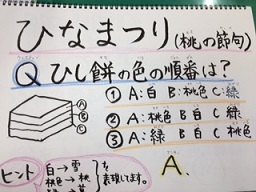 ひなまつり(桃の節句)
Q ひし餅の色の順番は?
① A:白 B:桃色 C:緑
② A:桃色 B 白 C 緑
③ A:緑 B 白 C 桃色
A
B
C
ヒント
白→雪
桃色→桃
を表現してます。
A.